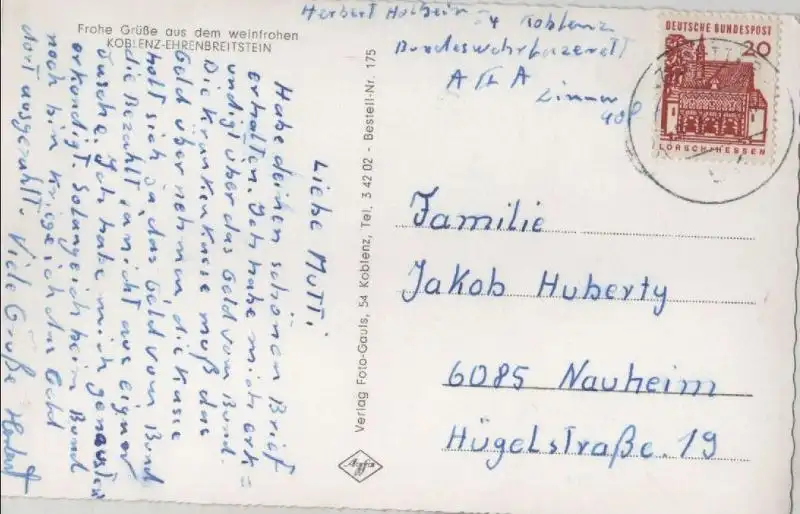 Frohe Grüße aus dem weinfrohen
KOBLENZ-EHRENBREITSTEIN
Herbert 54 Koblenz
Bundeswehrlazarett
A II A
Zimmer
DEUTSCHE BUNDESPOST
20
LORSCH/HESSEN
Liebe Mutti
Habe deinen schönen Brief
erhalten. Ich habe mich erk=
undigt über das Geld vom Bund.
Die Krankenkasse muß das
Geld übernehmen die Kasse
holt sich ja das Geld vom Bund
die Bezahlt ja nicht aus eigner
Tasche. Ich habe mich genausten
erkundigt. Solange ich beim Bund
noch bin kriege ich das Geld
dort ausgezahlt. Viele Grüße Herbert
Verlag Foto-Gauls, 54 Koblenz, Tel. 3 42 02 - Bestell-Nr. 175
Agfa
Familie
Jakob Huberty
6085 Nauheim
Hügelstraße 19